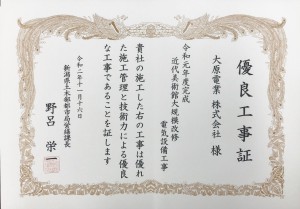 優良工事証
大原電業 株式会社 様
令和元年度完成
近代美術館大規模改修
電気設備工事
貴社の施工した右の工事は優れ
た施工管理と技術力による優良
な工事であることを証します
令和二年十一月十六日
新潟県土木部都市局営繕課長
野呂 栄一